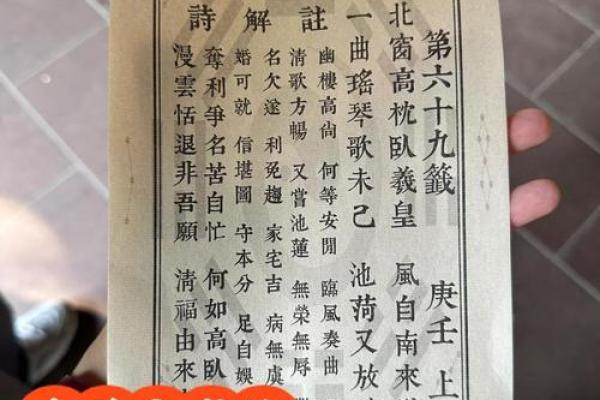 第六十九籤 庚壬 上
北窗高枕臥羲皇 風自南來
一曲瑤琴歌未已 池荷又放
註 解 詩
幽樓高尚 何等安閒 臨風奏曲
清歌方暢 又嘗池蓮 無榮無辱
名欠遂 利免趨 家宅吉 病無虞
婚可就 信堪圖 守本分 足自娛
奪利爭名苦自忙 何如高臥
漫雲恬退非吾願 清福由來